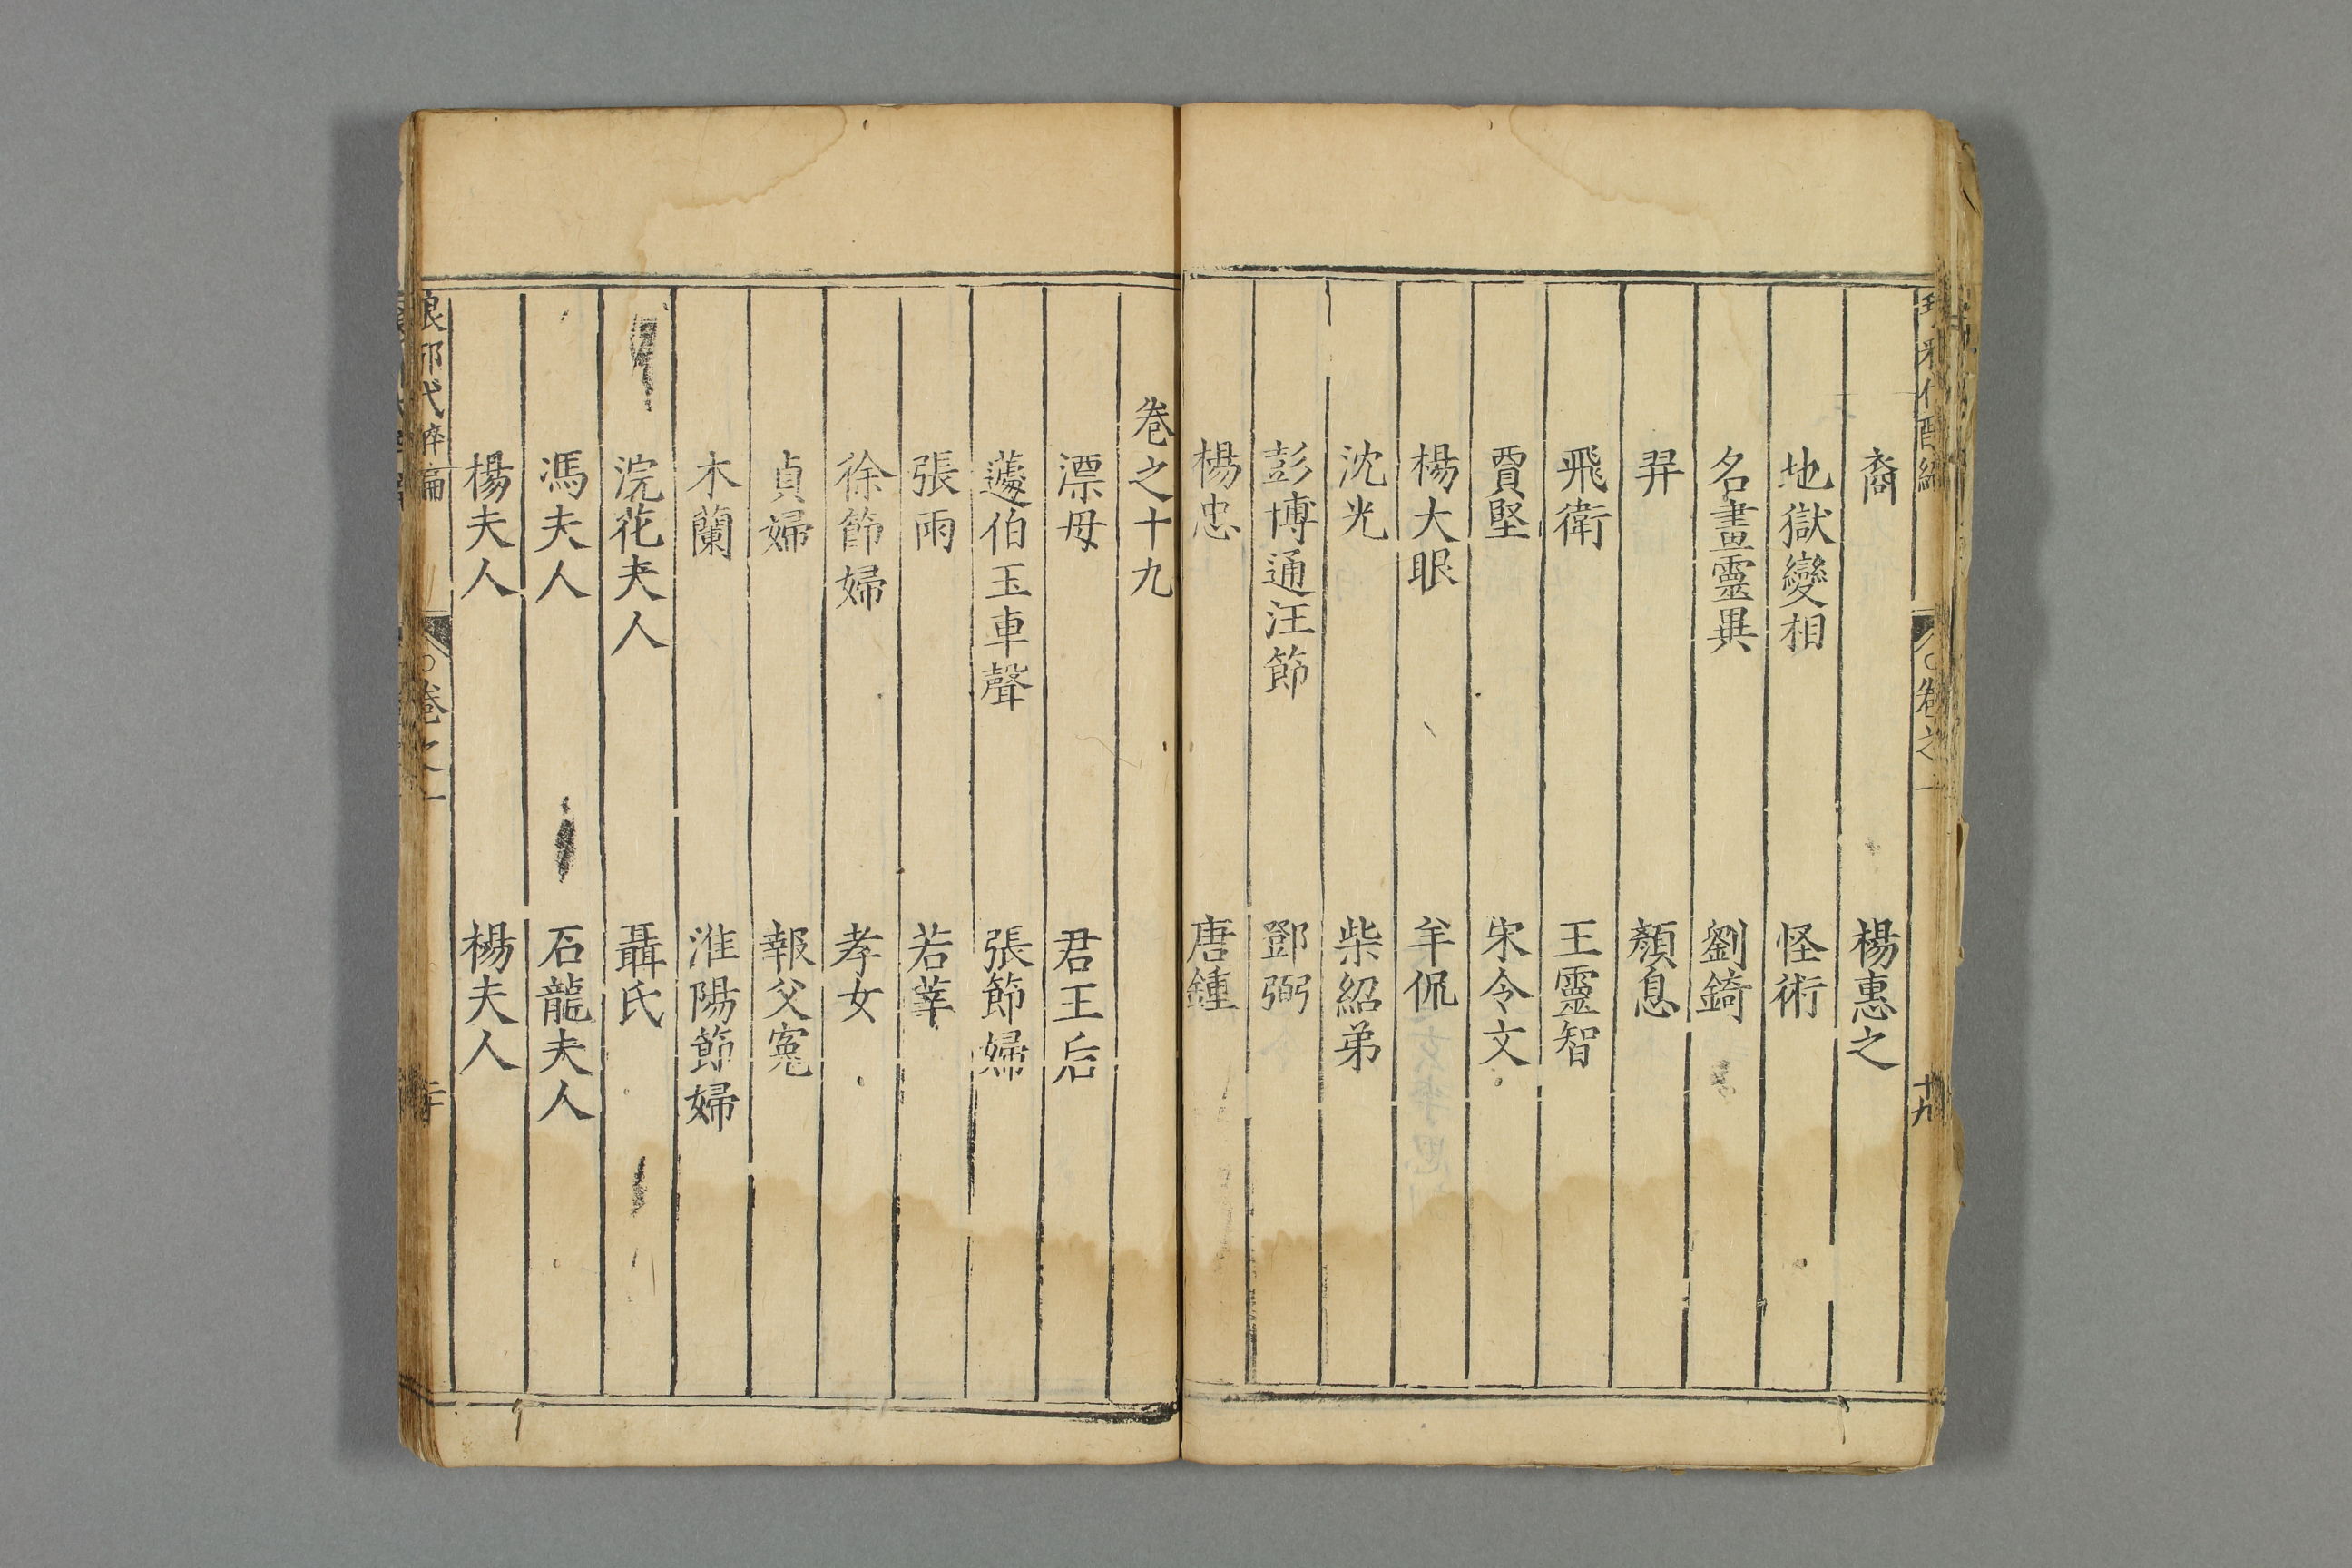 裔　楊惠之
地獄變相　怪術
名畫靈異　劉錡
羿　顏息
飛衛　王靈智
賈堅　宋令文
楊大眼　羊侃
沈光　柴紹弟
彭博通汪節　鄧弼
楊忠　唐鍾
卷之十九
漂母　君王后
蘧伯玉車聲　張節婦
張雨　若莘
徐節婦　孝女
貞婦　報父寃
木蘭　淮陽節婦
浣花夫人　聶氏
馮夫人　石龍夫人
楊夫人　楊夫人